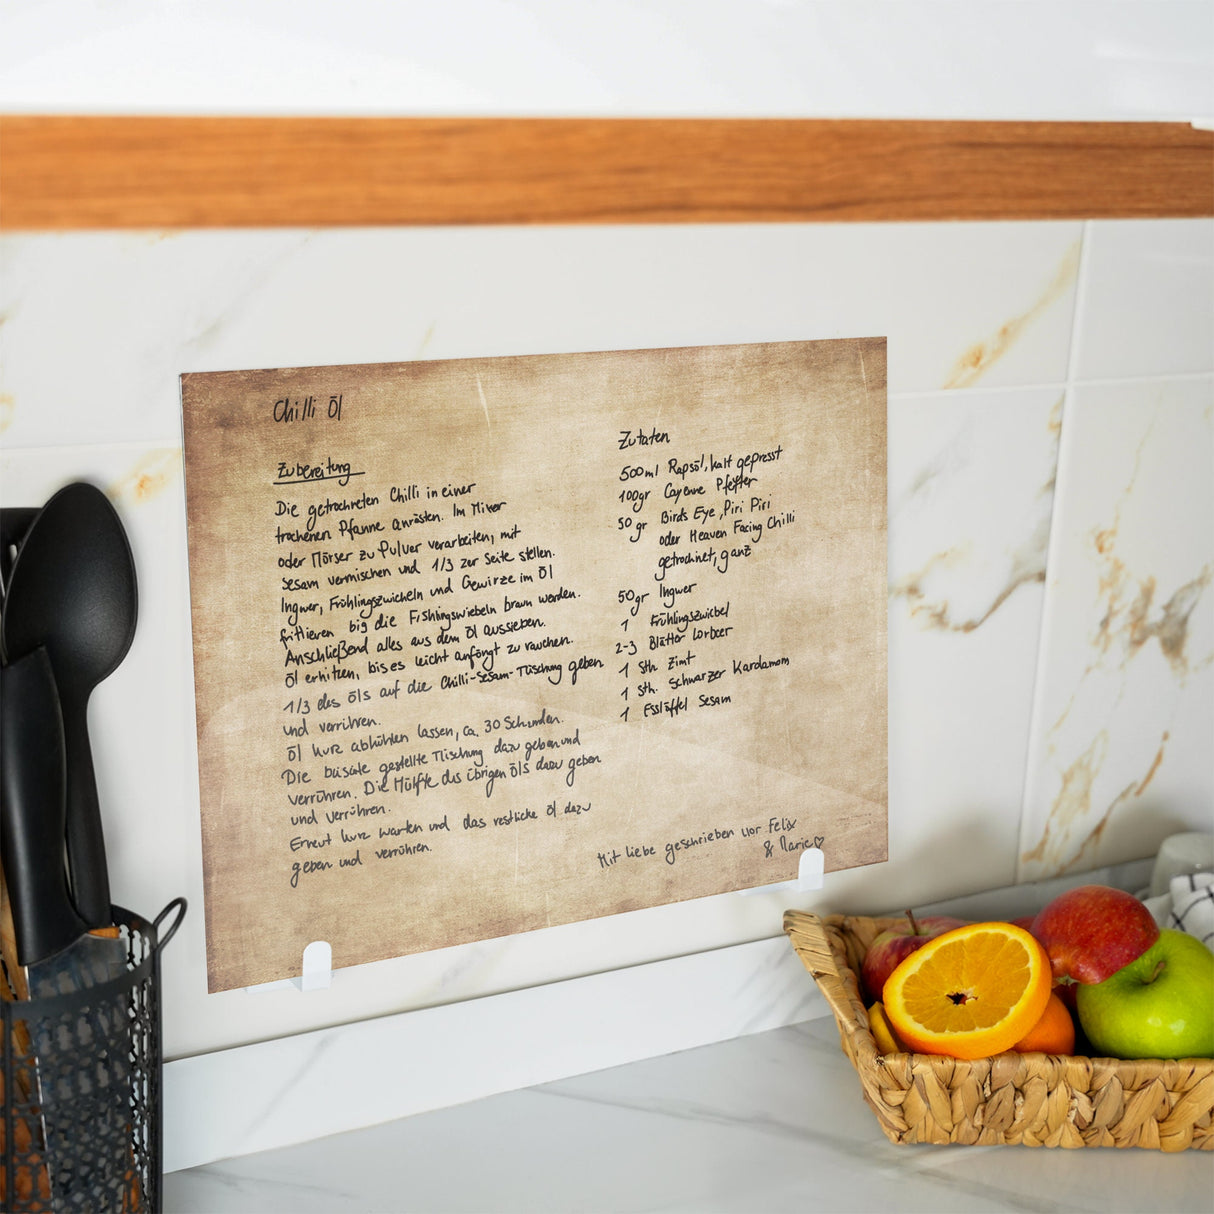 Chilli Öl
Zubereitung
Die getrockneten Chilli in einer
trockenen Pfanne anrösten. Im Mixer
oder Mörser zu Pulver verarbeiten, mit
Sesam vermischen und 1/3 zer Seite stellen.
Ingwer, Frühlingszwiebeln und Gewürze im Öl
frittieren big die Fishlingswiebeln braun werden.
Anschließend alles aus dem Öl aussieben.
Öl erhitzen, bis es leicht anfängt zu rauchen.
1/3 des Öls auf die Chilli-Sesam-Mischung geben
und verrühren.
Öl kurz abkühlen lassen, ca. 30 Sekunden.
Die beisate gestellte Mischung dazu geben und
verrühren. Die Hälfte des übrigen Öls dazu geben
und verrühren.
Erneut kurz warten und das restliche Öl dazu
geben und verrühren.
Zutaten
500ml Rapsöl, kalt gepresst
100gr Cayenne Pfeffer
50 gr Birds Eye, Piri Piri
oder Heaven Facing Chilli
getrocknet, ganz
50gr Ingwer
1 Frühlingszwiebel
2-3 Blätter Lorbeer
1 Stk. Zimt
1 Stk. Schwarzer Kardamom
1 Esslöffel Sesam
Mit liebe geschrieben von Felix
& Marie ♡